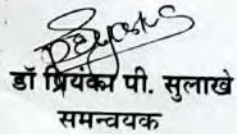 डॉ प्रियंका पी. सुलाखे
समन्वयक